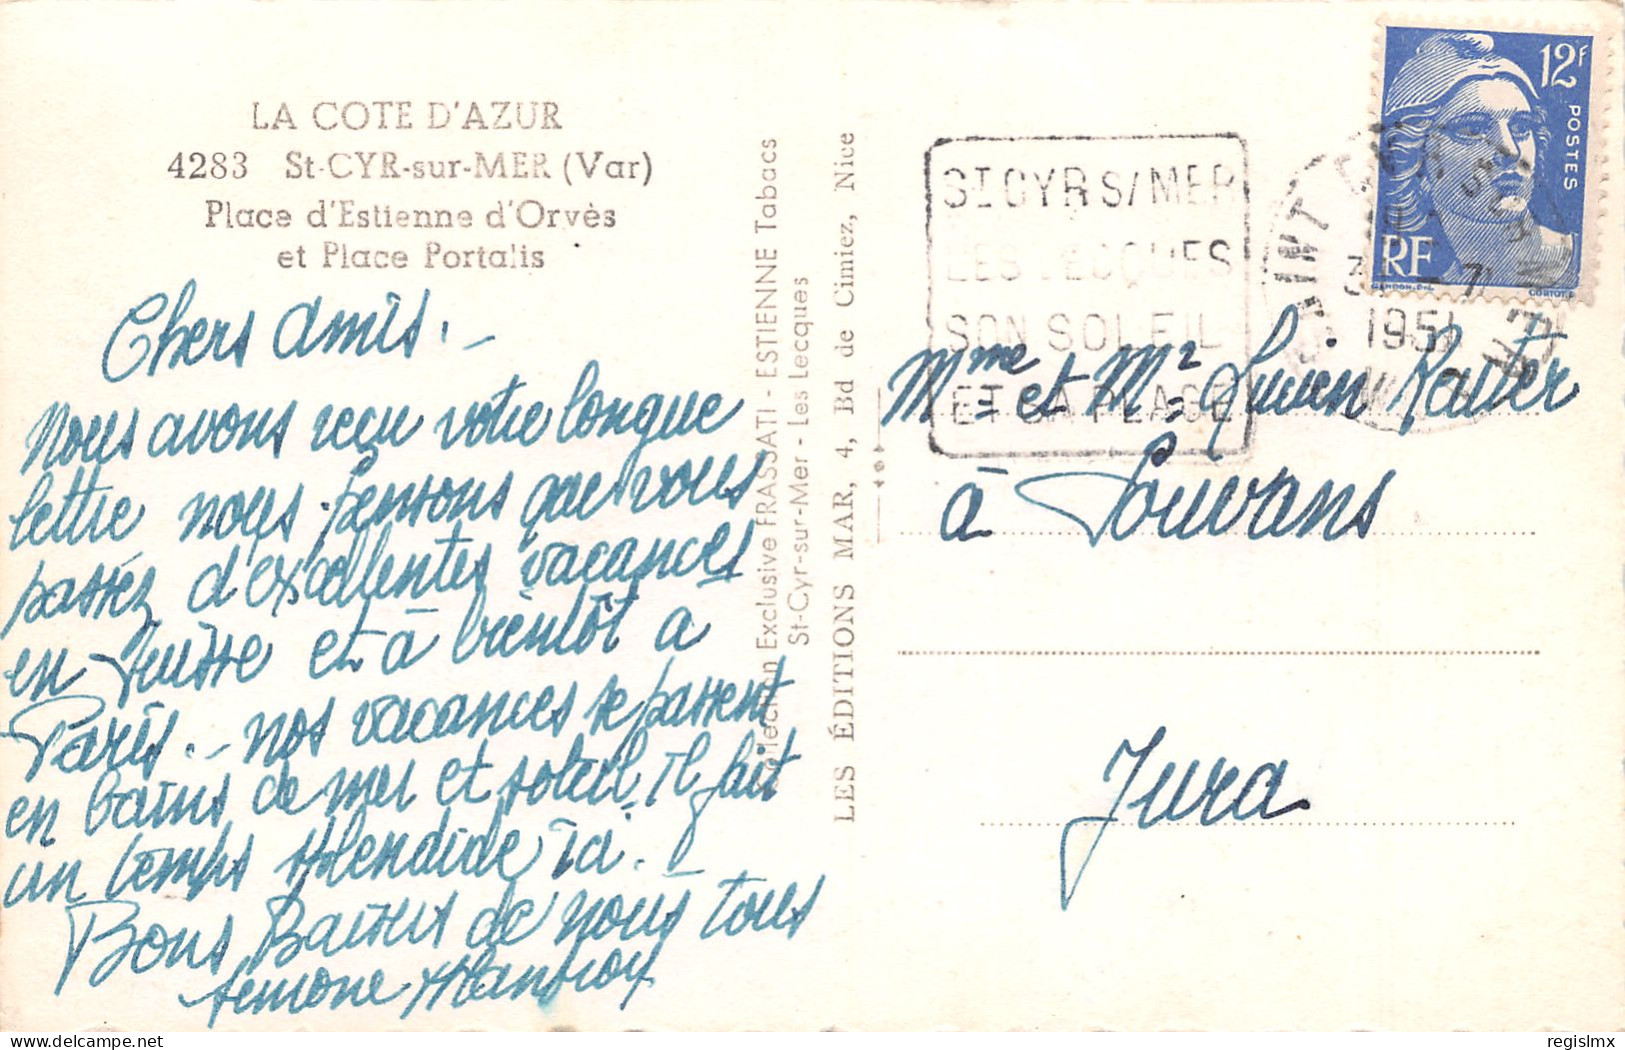 LA COTE D'AZUR
4283 St-CYR-sur-MER (Var)
Place d'Estienne d'Orvès
et Place Portalis
Chers amis. –
Nous avons reçu votre longue
lettre nous pensons que vous
passez d'excellentes vacances
en Suisse et à bientôt a
Paris. – nos vacances se passent
en bains de mer et soleil. il fait
un temps splendide ici.
Bons Baisers de nous tous
Collection Exclusive FRASSATI - ESTIENNE Tabacs
St-Cyr-sur-Mer - Les Lecques
LES ÉDITIONS MAR, 4, Bd de Cimiez, Nice
ST CYR S/MER
LES LECQUES
SON SOLEIL
ET SA PLAGE
1951
12F
POSTES
RF
GANDON. DEL.
CORTOT
Mme et Mr Lucien
à Pouvans
Jura
regislmx